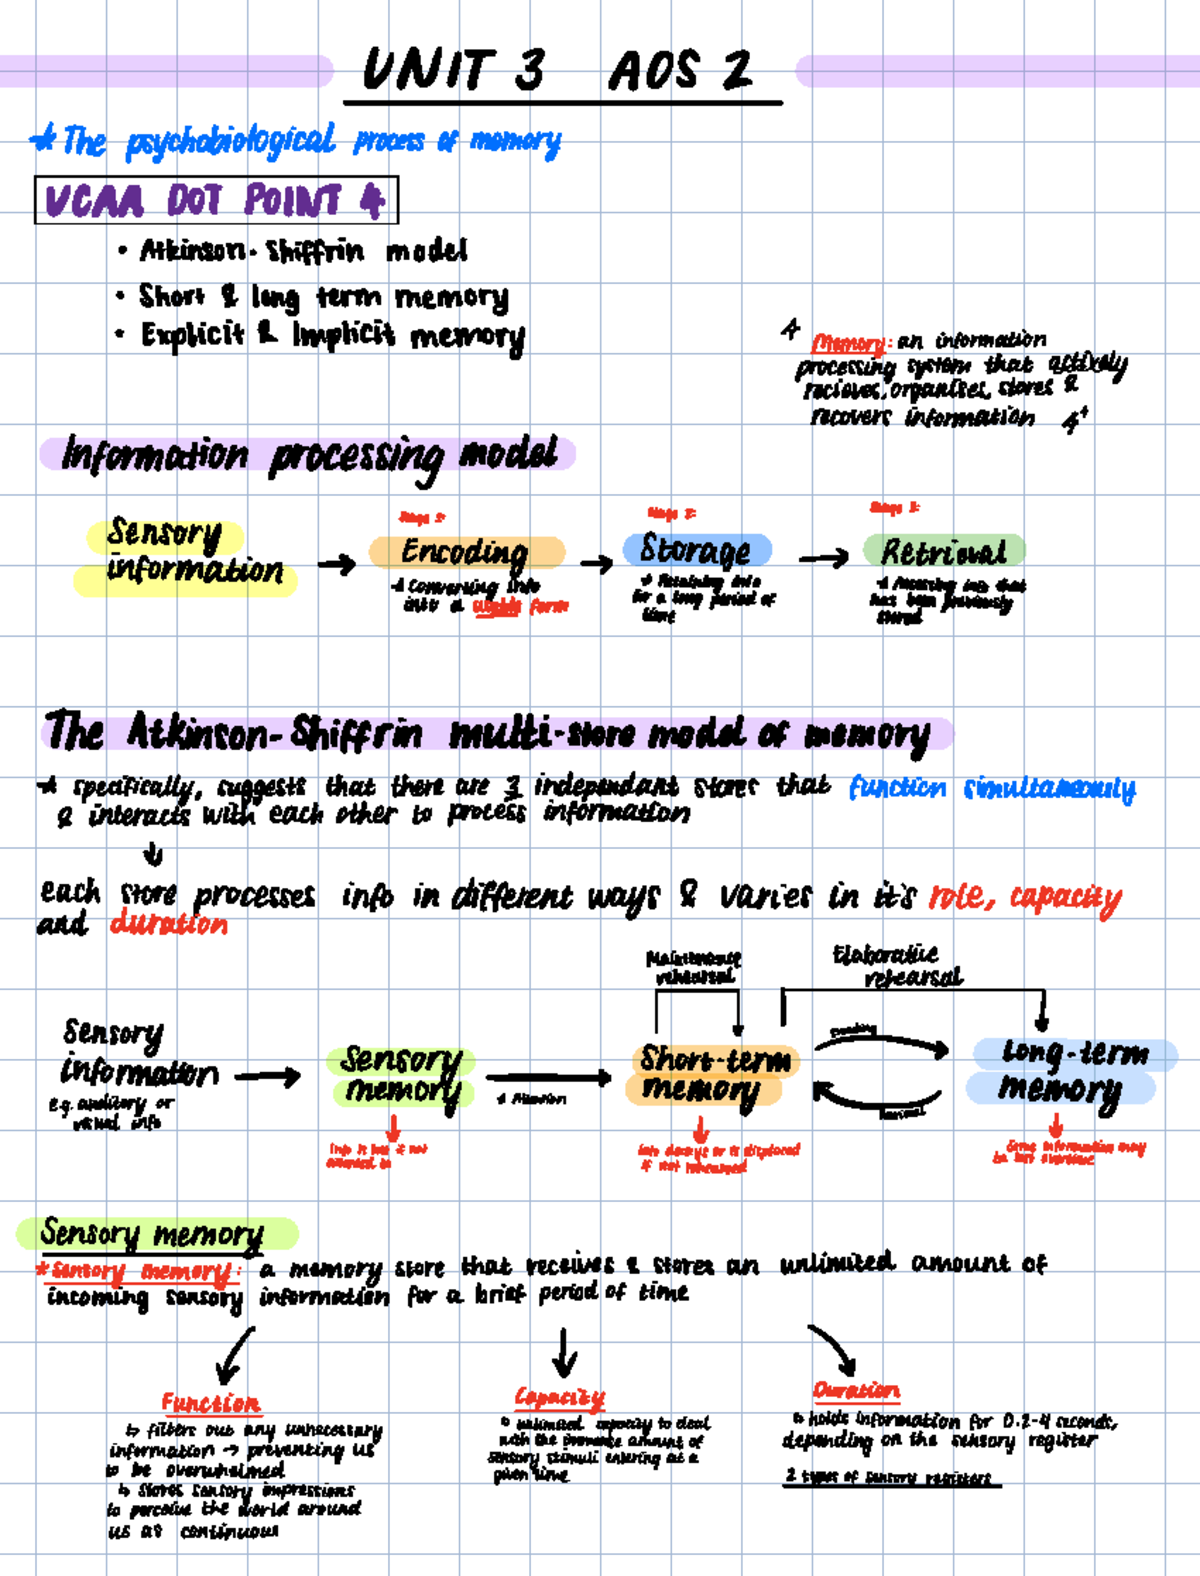 UNIT 3 AOS 2
* The psychobiological process of memory
VCAA DOT POINT 4
• Atkinson-Shiffrin model
• Short & long term memory
• Explicit & Implicit memory
Memory: an information
processing system that actively
recieves, organises, stores &
recovers information
Information processing model
Stage 1: Stage 2: Stage 3:
Sensory
information → Encoding → Storage → Retrieval
* Converting info
into a usable form
* Retaining info
for a long period of
time
* Accessing info that
has been previously
stored
The Atkinson-Shiffrin multi-store model of memory
* specifically, suggests that there are 3 independant stores that function simultaneously
& interacts with each other to process information
↓
each store processes info in different ways & varies in it's role, capacity
and duration
Maintenance
rehearsal
Elaborative
rehearsal
Sensory
information
e.g. auditory or
visual info
Sensory
memory
* Attention
Short-term
memory
Encoding
Retrieval
Long-term
memory
Info is lost if not
attended to
Info decays or is displaced
if not rehearsed
Some information may
be lost overtime
Sensory memory
* Sensory memory: a memory store that receives & stores an unlimited amount of
incoming sensory information for a brief period of time
Function
↳ filters out any unnecessary
information → preventing us
to be overwhelmed
↳ stores sensory impressions
to perceive the world around
us as continuous
Capacity
↳ unlimited capacity to deal
with the immense amount of
sensory stimuli entering at a
given time
Duration
↳ holds information for 0.2-4 seconds,
depending on the sensory register
2 types of sensory registers